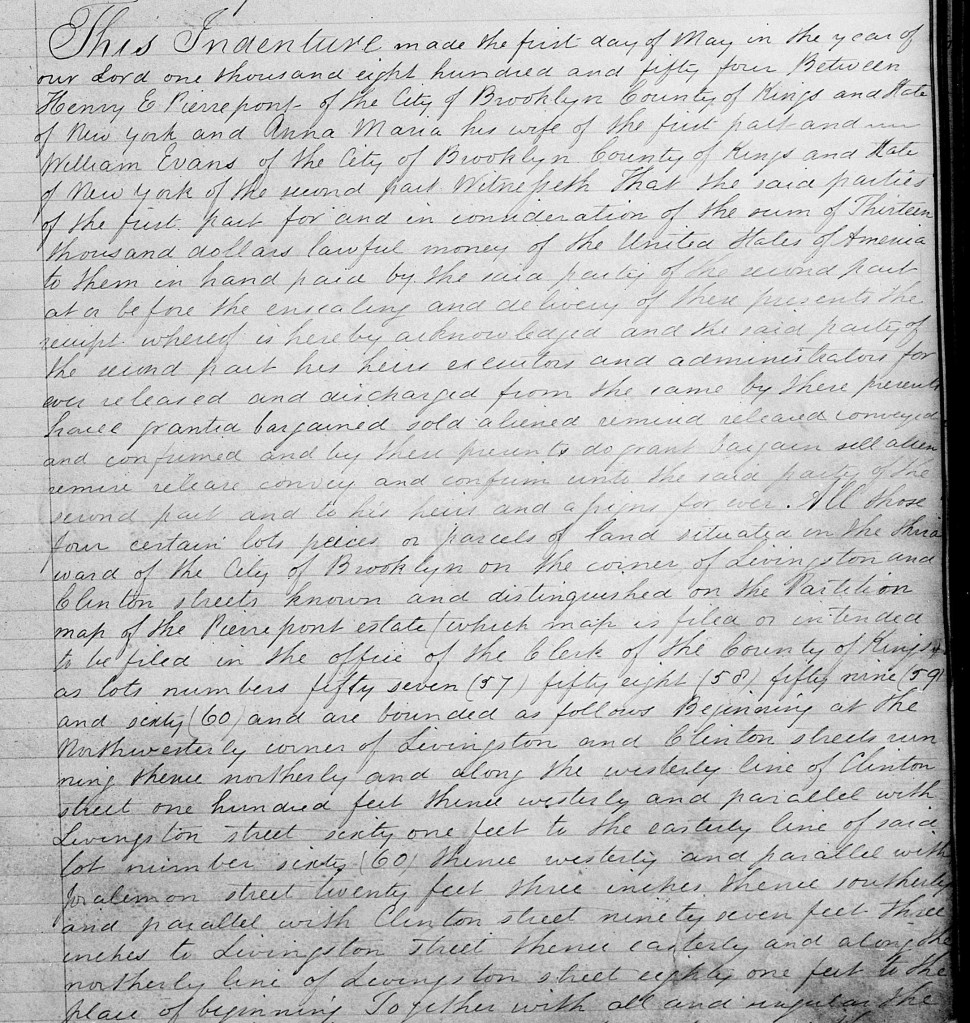 This Indenture made the first day of May in the year of
our Lord one thousand eight hundred and fifty four Between
Henry E Pierrepont of the City of Brooklyn County of Kings and State
of New York and Anna Maria his wife of the first part and
William Evans of the City of Brooklyn County of Kings and State
of New York of the second part Witnesseth That the said parties
of the first part for and in consideration of the sum of Thirteen
thousand dollars lawful money of the United States of America
to them in hand paid by the said party of the second part
at or before the ensealing and delivery of these presents the
receipt whereof is hereby acknowledged and the said party of
the second part his heirs executors and administrators for
ever released and discharged from the same by these presents
have granted bargained sold aliened remised released conveyed
and confirmed and by these presents do grant bargain sell alien
remise release convey and confirm unto the said party of the
second part and to his heirs and assigns for ever. All those
four certain lots peices or parcels of land situated in the third
ward of the City of Brooklyn on the corner of Livingston and
Clinton streets known and distinguished on the Partition
map of the Pierrepont estate (which map is filed or intended
to be filed in the office of the Clerk of the County of Kings)
as lots numbers fifty seven (57) fifty eight (58) fifty nine (59)
and sixty (60) and are bounded as follows Beginning at the
Northwesterly corner of Livingston and Clinton streets run
ning thence northerly and along the westerly line of Clinton
street one hundred feet thence westerly and parallel with
Livingston street sixty one feet to the easterly line of said
lot number sixty (60) thence westerly and parallel with
Joralemon street twenty feet three inches thence southerly
and parallel with Clinton street ninety seven feet three
inches to Livingston street thence easterly and along the
northerly line of Livingston street eighty one feet to the
place of beginning Together with all and singular the